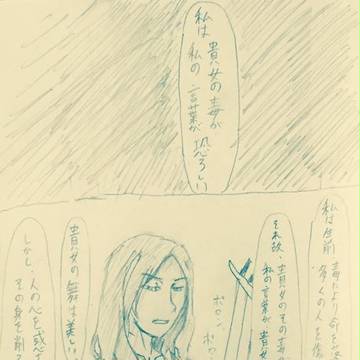 私は
貴女の毒が
私の言葉が
恐ろしい
私は生前
毒により、命を
多くの人を
それ故、貴女のその毒
私の言葉が貴女
ポロン、
ポロ
貴女の舞は美しい
しかし、人の心を惑
その身を削